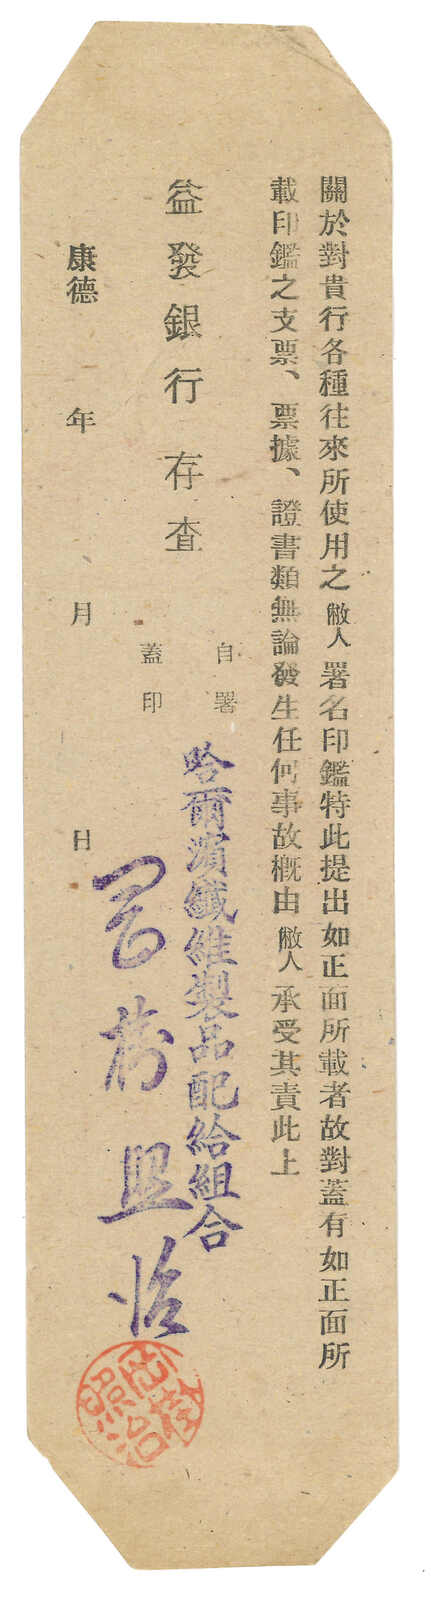 關於對貴行各種往來所使用之敝人署名印鑑特此提出如正面所載者故對蓋有如正面所
載印鑑之支票、票據、證書類無論發生任何事故概由敝人承受其責此上
益發銀行 存查
自署
蓋印
哈爾濱纖維製品配給組合
康德 年 月 日